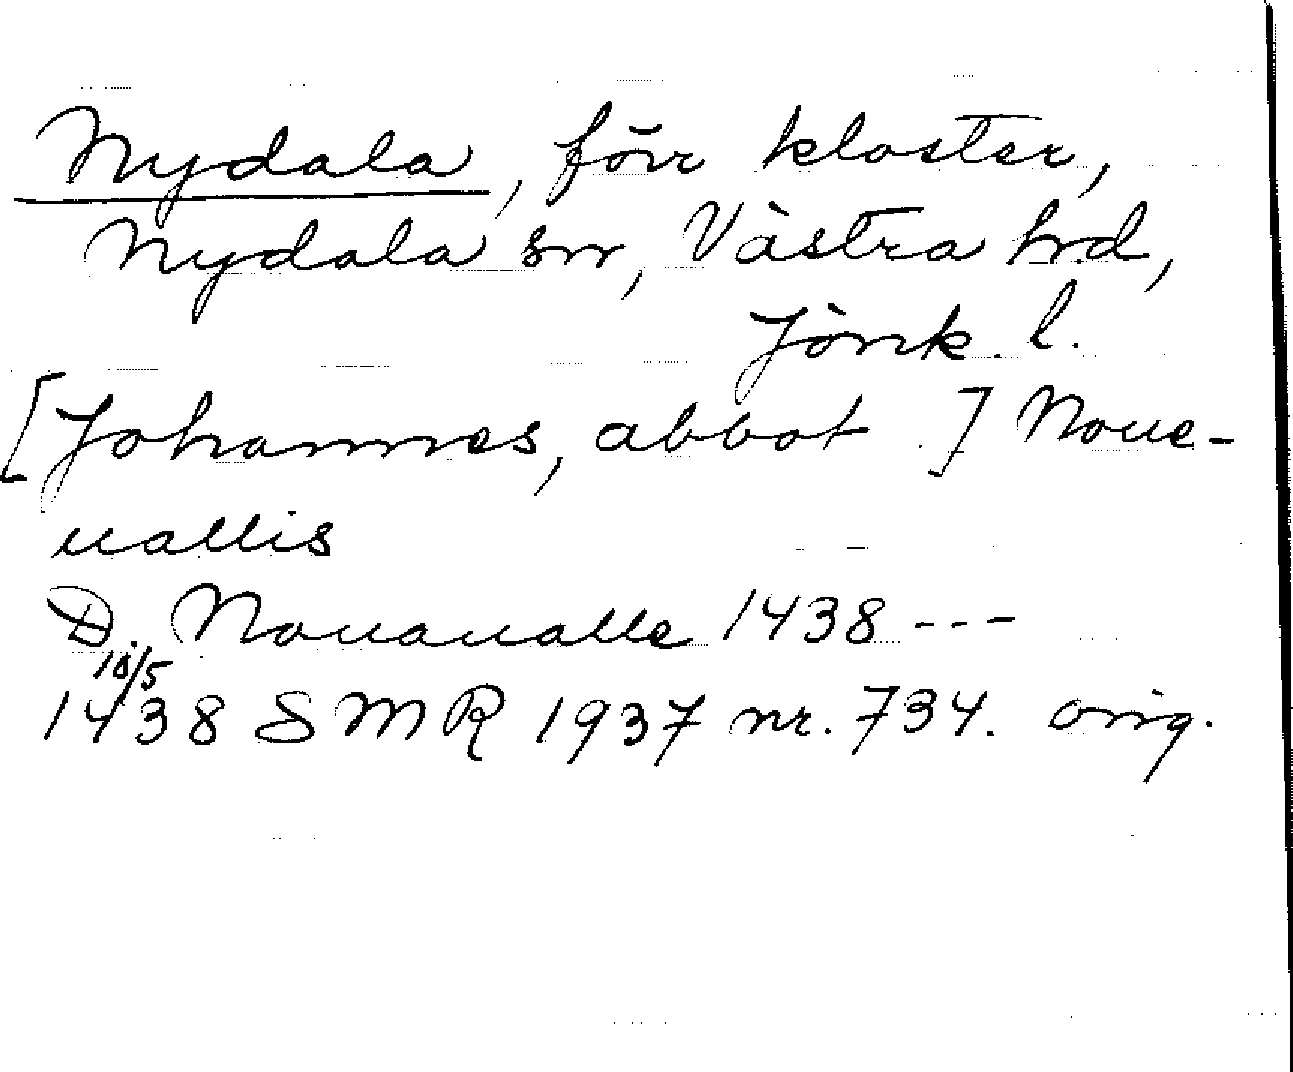 Nydala, förr kloster,
Nydala sn, Västra hd,
Jönk. l.
[Johannes, abbot.] Noue-
uallis
D. Nouaualle 1438 ---
18/5
1438 SMR 1937 nr. 734. orig.